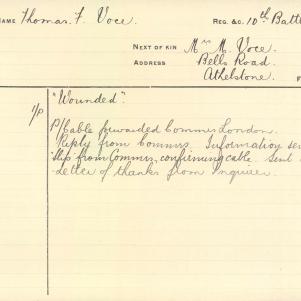 NAME Thomas F Voce REG. &C. 10th Batt
NEXT OF KIN Mrs M. Voce.
ADDRESS Bells Road.
Athelstone. F
1/p "Wounded".
P/Cable forwarded Commrs London.
Reply from Commrs. Information sen
slip from Commrs, confirming cable. Sent
Letter of thanks from Inquirer.